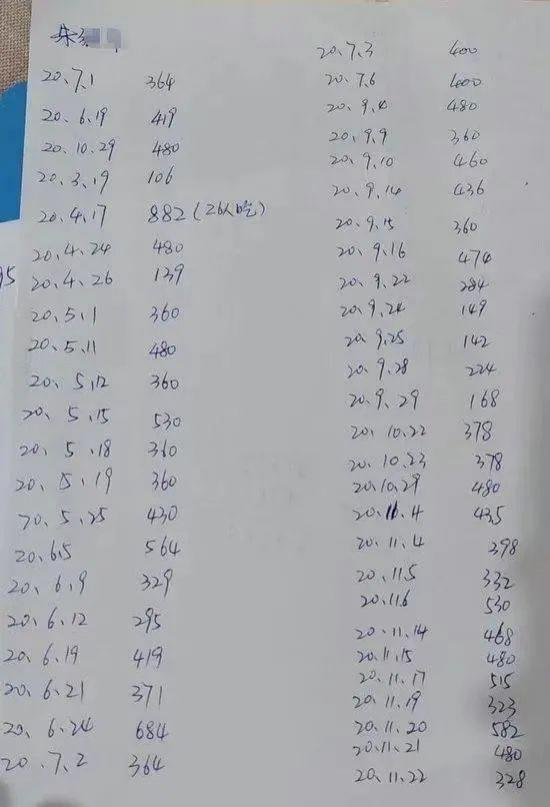 朱
20.7.1 364
20.6.19 419
20.10.29 480
20.3.19 106
20.4.17 882(26人吃)
20.4.24 480
95
20.4.26 139
20.5.1 360
20.5.11 480
20.5.12 360
20.5.15 530
20.5.18 360
20.5.19 360
20.5.25 430
20.6.5 564
20.6.9 329
20.6.12 295
20.6.19 419
20.6.21 371
20.6.24 684
20.7.2 364
20.7.3 400
20.7.6 600
20.9.4 480
20.9.9 360
20.9.10 460
20.9.14 436
20.9.15 360
20.9.16 474
20.9.22 284
20.9.24 149
20.9.25 142
20.9.28 224
20.9.29 168
20.10.22 378
20.10.23 378
20.10.29 480
20.11.4 435
20.11.4 398
20.11.5 332
20.11.6 530
20.11.14 468
20.11.15 480
20.11.17 515
20.11.19 323
20.11.20 582
20.11.21 480
20.11.22 328